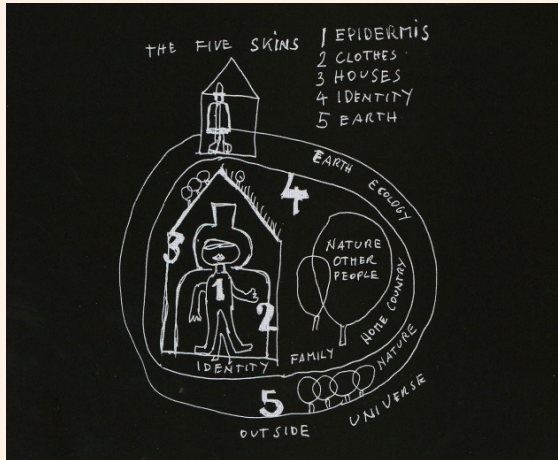 THE FIVE SKINS
1 EPIDERMIS
2 CLOTHES
3 HOUSES
4 IDENTITY
5 EARTH
EARTH ECOLOGY
4
3
NATURE
OTHER
PEOPLE
1
2
HOME COUNTRY
IDENTITY
FAMILY
NATURE
5
OUTSIDE
UNIVERSE